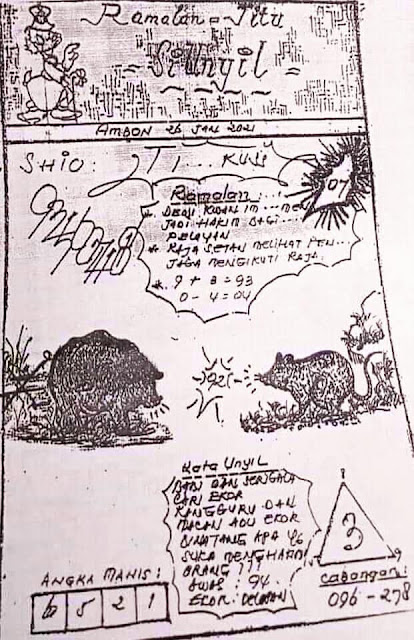 Ramalan = Jitu
= Si Unyil =
AMBON 26 JAN 2021
SHIO : JTI... KUS
07
Ramalan :
* DEWI KWAN IM ... MEN
JADI HAKIM BAGI
PELAYAN
* RAJA SETAN MELIHAT PEN...
JAGA MENGIKUTI RAJA.
* 9 + 3 = 93
0 - 4 = 04
Kata Unyil
BABI DAN SERIGALA
CARI EKOR
KANGGURU DAN
MACAN ADU EKOR
BINATANG APA YG
SUKA MENGHARM
ORANG ???
AWAS : 94.
EKOR : DELAPAN
3
ANGKA MANIS :
6 5 2 1
Cabangan :
096 - 278